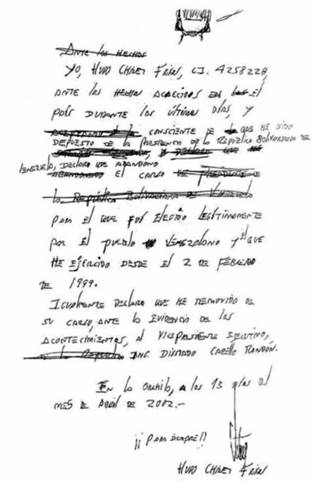 Ante los hechos
Yo, Hugo Chávez Frías, C.I. 4258228,
ante los hechos acaecidos en el
país durante los últimos días y
consciente de que he sido
depuesto de la Presidencia de la República Bolivariana de
Venezuela, declaro que abandono
abandonado el cargo de Presidente de
la República Bolivariana de Venezuela
para el que fui electo legítimamente
por el pueblo Venezolano y que
he ejercido desde el 2 de febrero
de 1999.
Igualmente declaro que he removido de
su cargo, ante la evidencia de los
acontecimientos, al Vicepresidente Ejecutivo,
Ing. Diosdado Cabello Rondón.
En la Orchila, a los 13 días del
mes de Abril de 2002.-
¡¡Para siempre!!
Hugo Chávez Frías